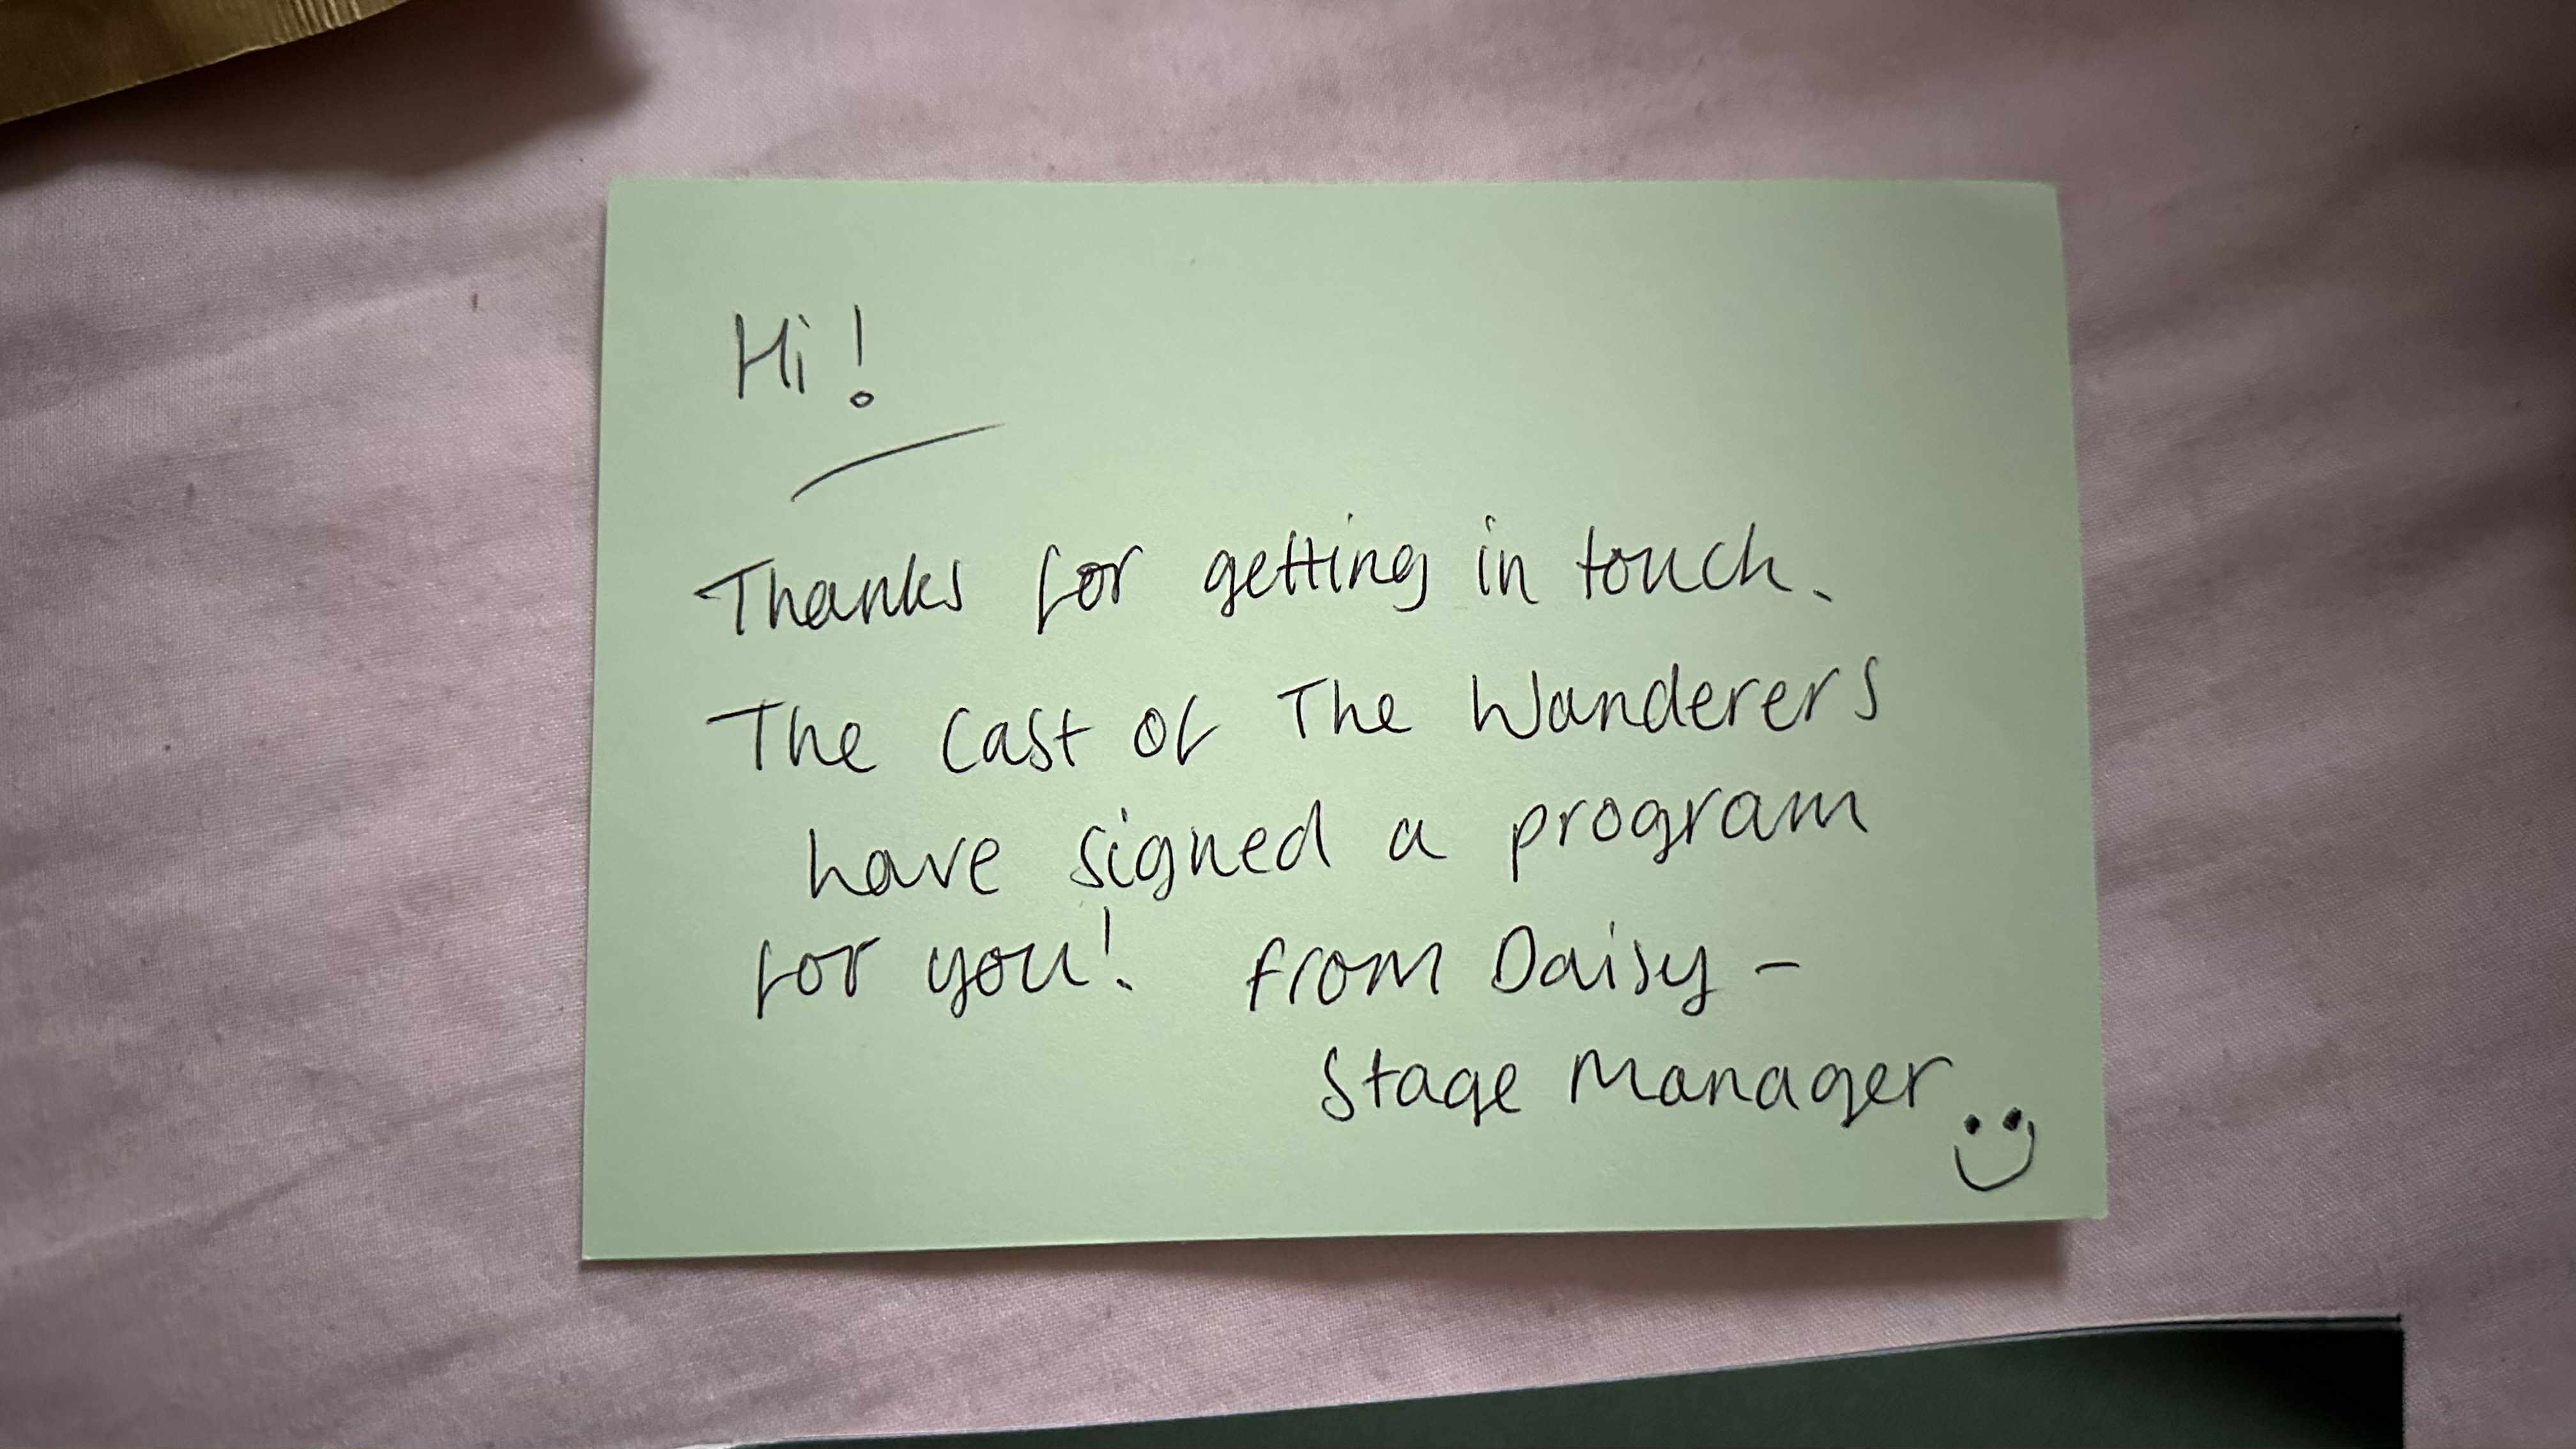 Hi!
Thanks for getting in touch.
The cast of The Wanderers
have signed a program
for you! from Daisy -
Stage Manager